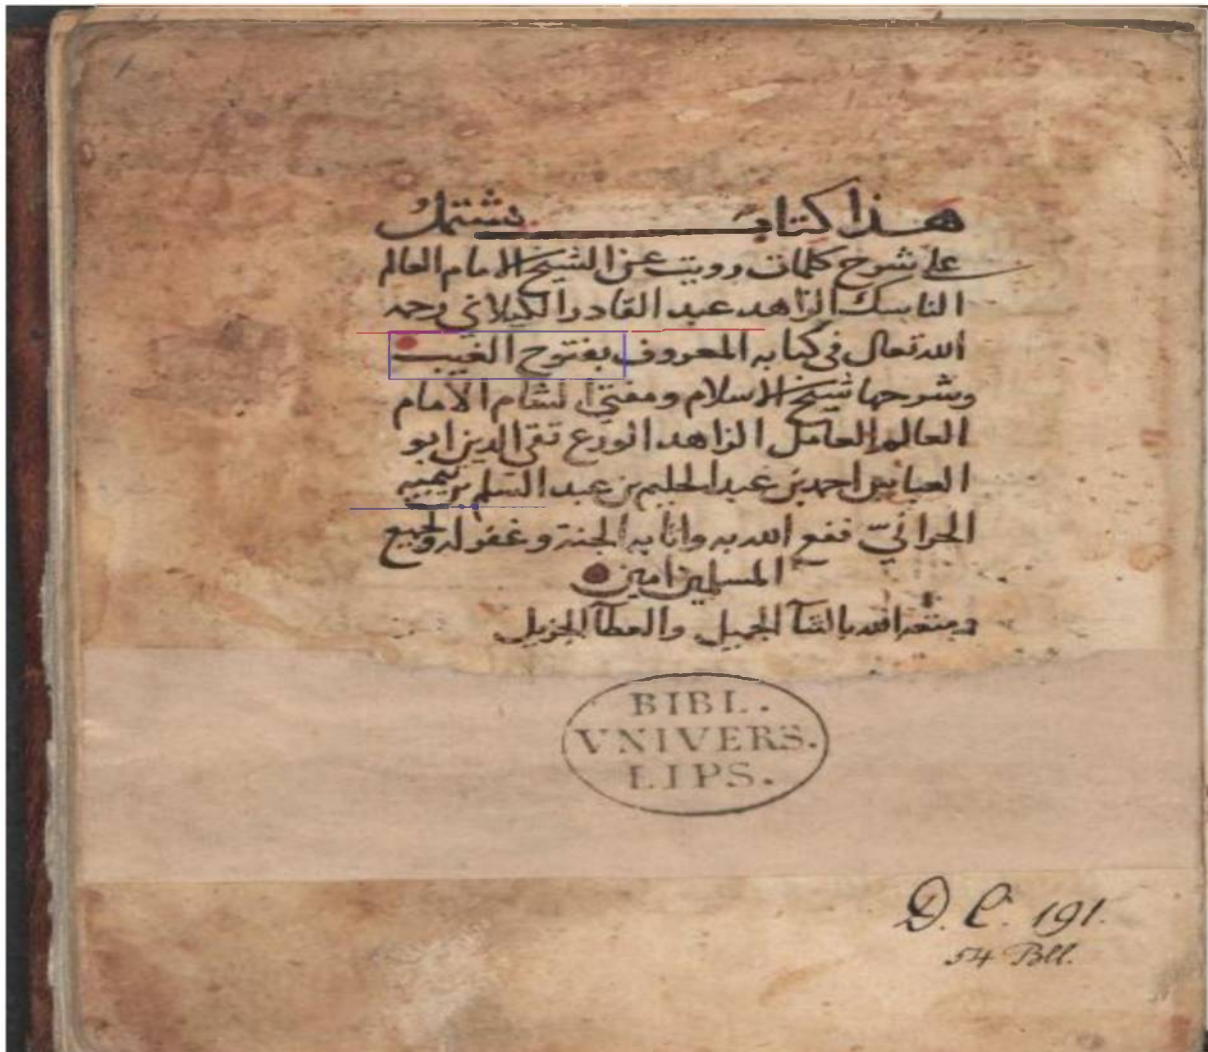 هذا كتاب يشتمل
على شرح كلمات رويت عن الشيخ الامام العالم
الناسك الزاهد عبد القادر الكيلاني رحمه
الله تعالى في كتابه المعروف بفتوح الغيب
وشرحها شيخ الاسلام ومفتي الشام الامام
العالم العامل الزاهد الورع تقي الدين ابو
العباس احمد بن عبد الحليم بن عبد السلم بن تيميه
الحراني نفع الله به واثابه الجنة وغفر له ولجميع
المسلمين امين
ومتعه الله بالثنآ الجميل والعطآ الجزيل
BIBL.
VNIVERS.
LIPS.
D. C. 191.
54 Bll.